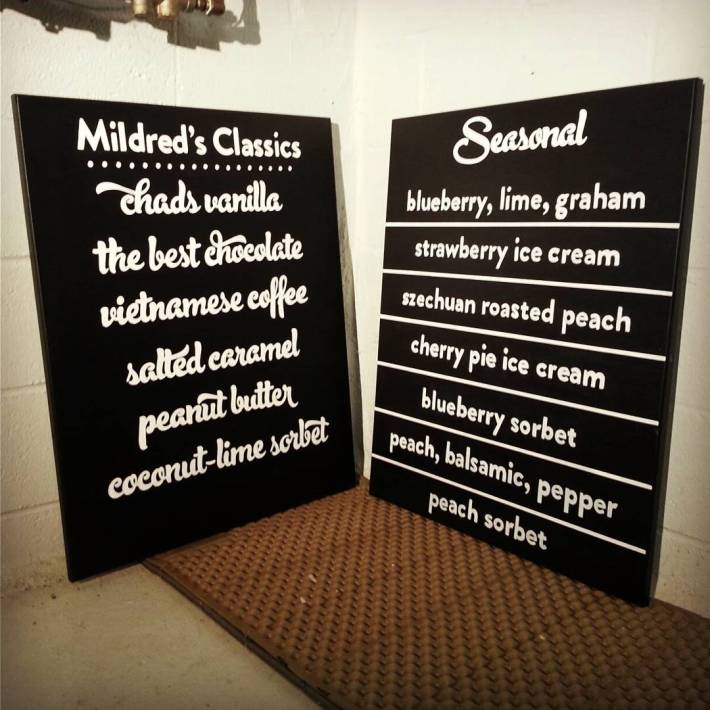 Mildred's Classics
chads vanilla
the best chocolate
vietnamese coffee
salted caramel
peanut butter
coconut-lime sorbet
Seasonal
blueberry, lime, graham
strawberry ice cream
szechuan roasted peach
cherry pie ice cream
blueberry sorbet
peach, balsamic, pepper
peach sorbet